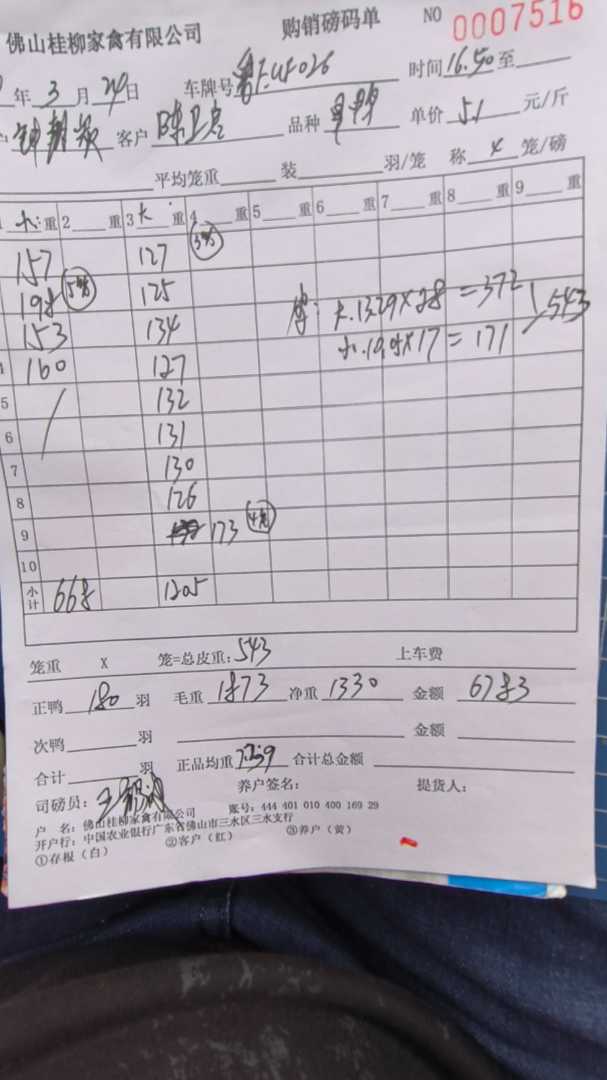 佛山桂柳家禽有限公司 购销磅码单 NO 0007516
年 3 月 24 日 车牌号 026 时间 16.50 至
客户 陈卫亮 品种 单价 5.1 元/斤
平均笼重 装 羽/笼 称 4 笼/磅
小: 重 2 重 3 大 重 4 重 5 重 6 重 7 重 8 重 9 重
157 127
198 125
153 134 大.13.29×28=372 543
160 127 小. ×17=171
5 132
6 131
7 130
8 126
9 173
10
小计 668 1205
笼重 X 笼=总皮重: 543 上车费
正鸭 180 羽 毛重 1873 净重 1330 金额 6783
次鸭 羽 金额
合计 羽 正品均重 7.39 合计总金额
司磅员: 养户签名: 提货人:
户 名: 佛山桂柳家禽有限公司 账号: 444 401 010 400 169 29
开户行: 中国农业银行广东省佛山市三水区三水支行
①存根(白) ②客户(红) ③养户(黄)